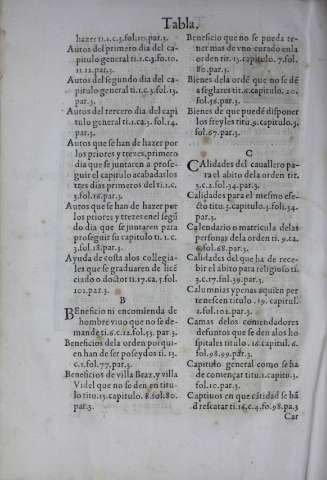 Tabla.
hazer ti.1.c.3.fol.10.par.3.
Autos del primero dia del ca-
pitulo general ti.1.c.3.fo.10.
11.12.par.3.
Autos del segundo dia del ca-
pitulo general ti.1.c.3.fol.13.
par.3.
Autos del tercero dia del capi
tulo general ti.1.c.3. fol.14.
par.3.
Autos que se han de hazer por
los priores y treze, primero
dia que se juntaren a prose-
guir el capitulo acabados los
tres dias primeros del ti.1.c.
3.fol.16.par.3.
Autos que se han de hazer por
los priores y trezes en el segũ
do dia que se juntaren para
proseguir su capitulo ti.1.c.
3.fol.18.par.3.
Ayuda de costa a los collegia-
les que se graduaren de licẽ
ciado o doctor ti.17.ca.5.fol.
101.par.3.
B
Beneficio ni encomienda de
hombre viuo que no se de-
mande ti.6.c.12.fol.55.par.3
Beneficios dela orden por qui-
en han de ser poseydos ti.13.
c.1.fol.77.par.3.
Beneficios de villa Braz. y villa
Videl que no se den en titu-
lo titu.13.capitulo.8.fol.80.
par.3.
Beneficio que no se pueda te-
ner mas de vno curado en la
orden tit.13.capitulo.7.fol.
80.par.3.
Bienes dela ordẽ que no se dẽ
a seglares tit.6.capitulo.20.
fol.56.par.3.
Bienes de que puedẽ disponer
los freyles titu.9.capitulo.5.
fol.67.par.3.
C
Calidades del cauallero pa-
ra el abito dela orden tit.
5.c.1.fol.34.par.3.
Calidades para el mesmo efe-
cto titu.5.capitulo.3.foli.34.
par.3.
Calendario o matricula de las
personas dela orden ti.9.ca.
fol.68.par.3.
Calidades del que ha de rece-
bir el abito para religioso ti.
3.c.17.fol.31.par.3.
Calumnias y penas a quien per
tenescen titulo.19.capitul.
2.fol.102.par.3.
Camas delos comendadores
defuntos que se den a los ho
spitales titulo.16.capitul.6.
fol.98.99.par.3.
Capitulo general como se ha
de començar titu.1.capitu.3.
fol.10.par.3.
Captiuos en que cãtidad se hã
d rescatar ti.16.c.4.fo.98.pa.3
Car